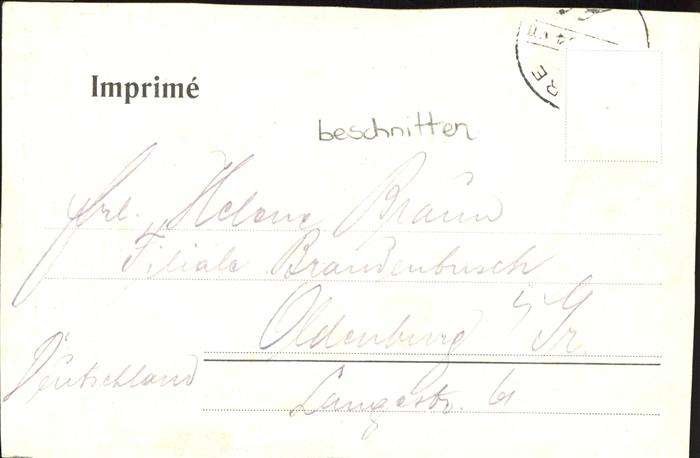 RE
Imprimé
beschnitten
Frl. Helene Braun
Filiale Brandenbusch
Oldenburg i/Gr.
Deutschland
Langestr.